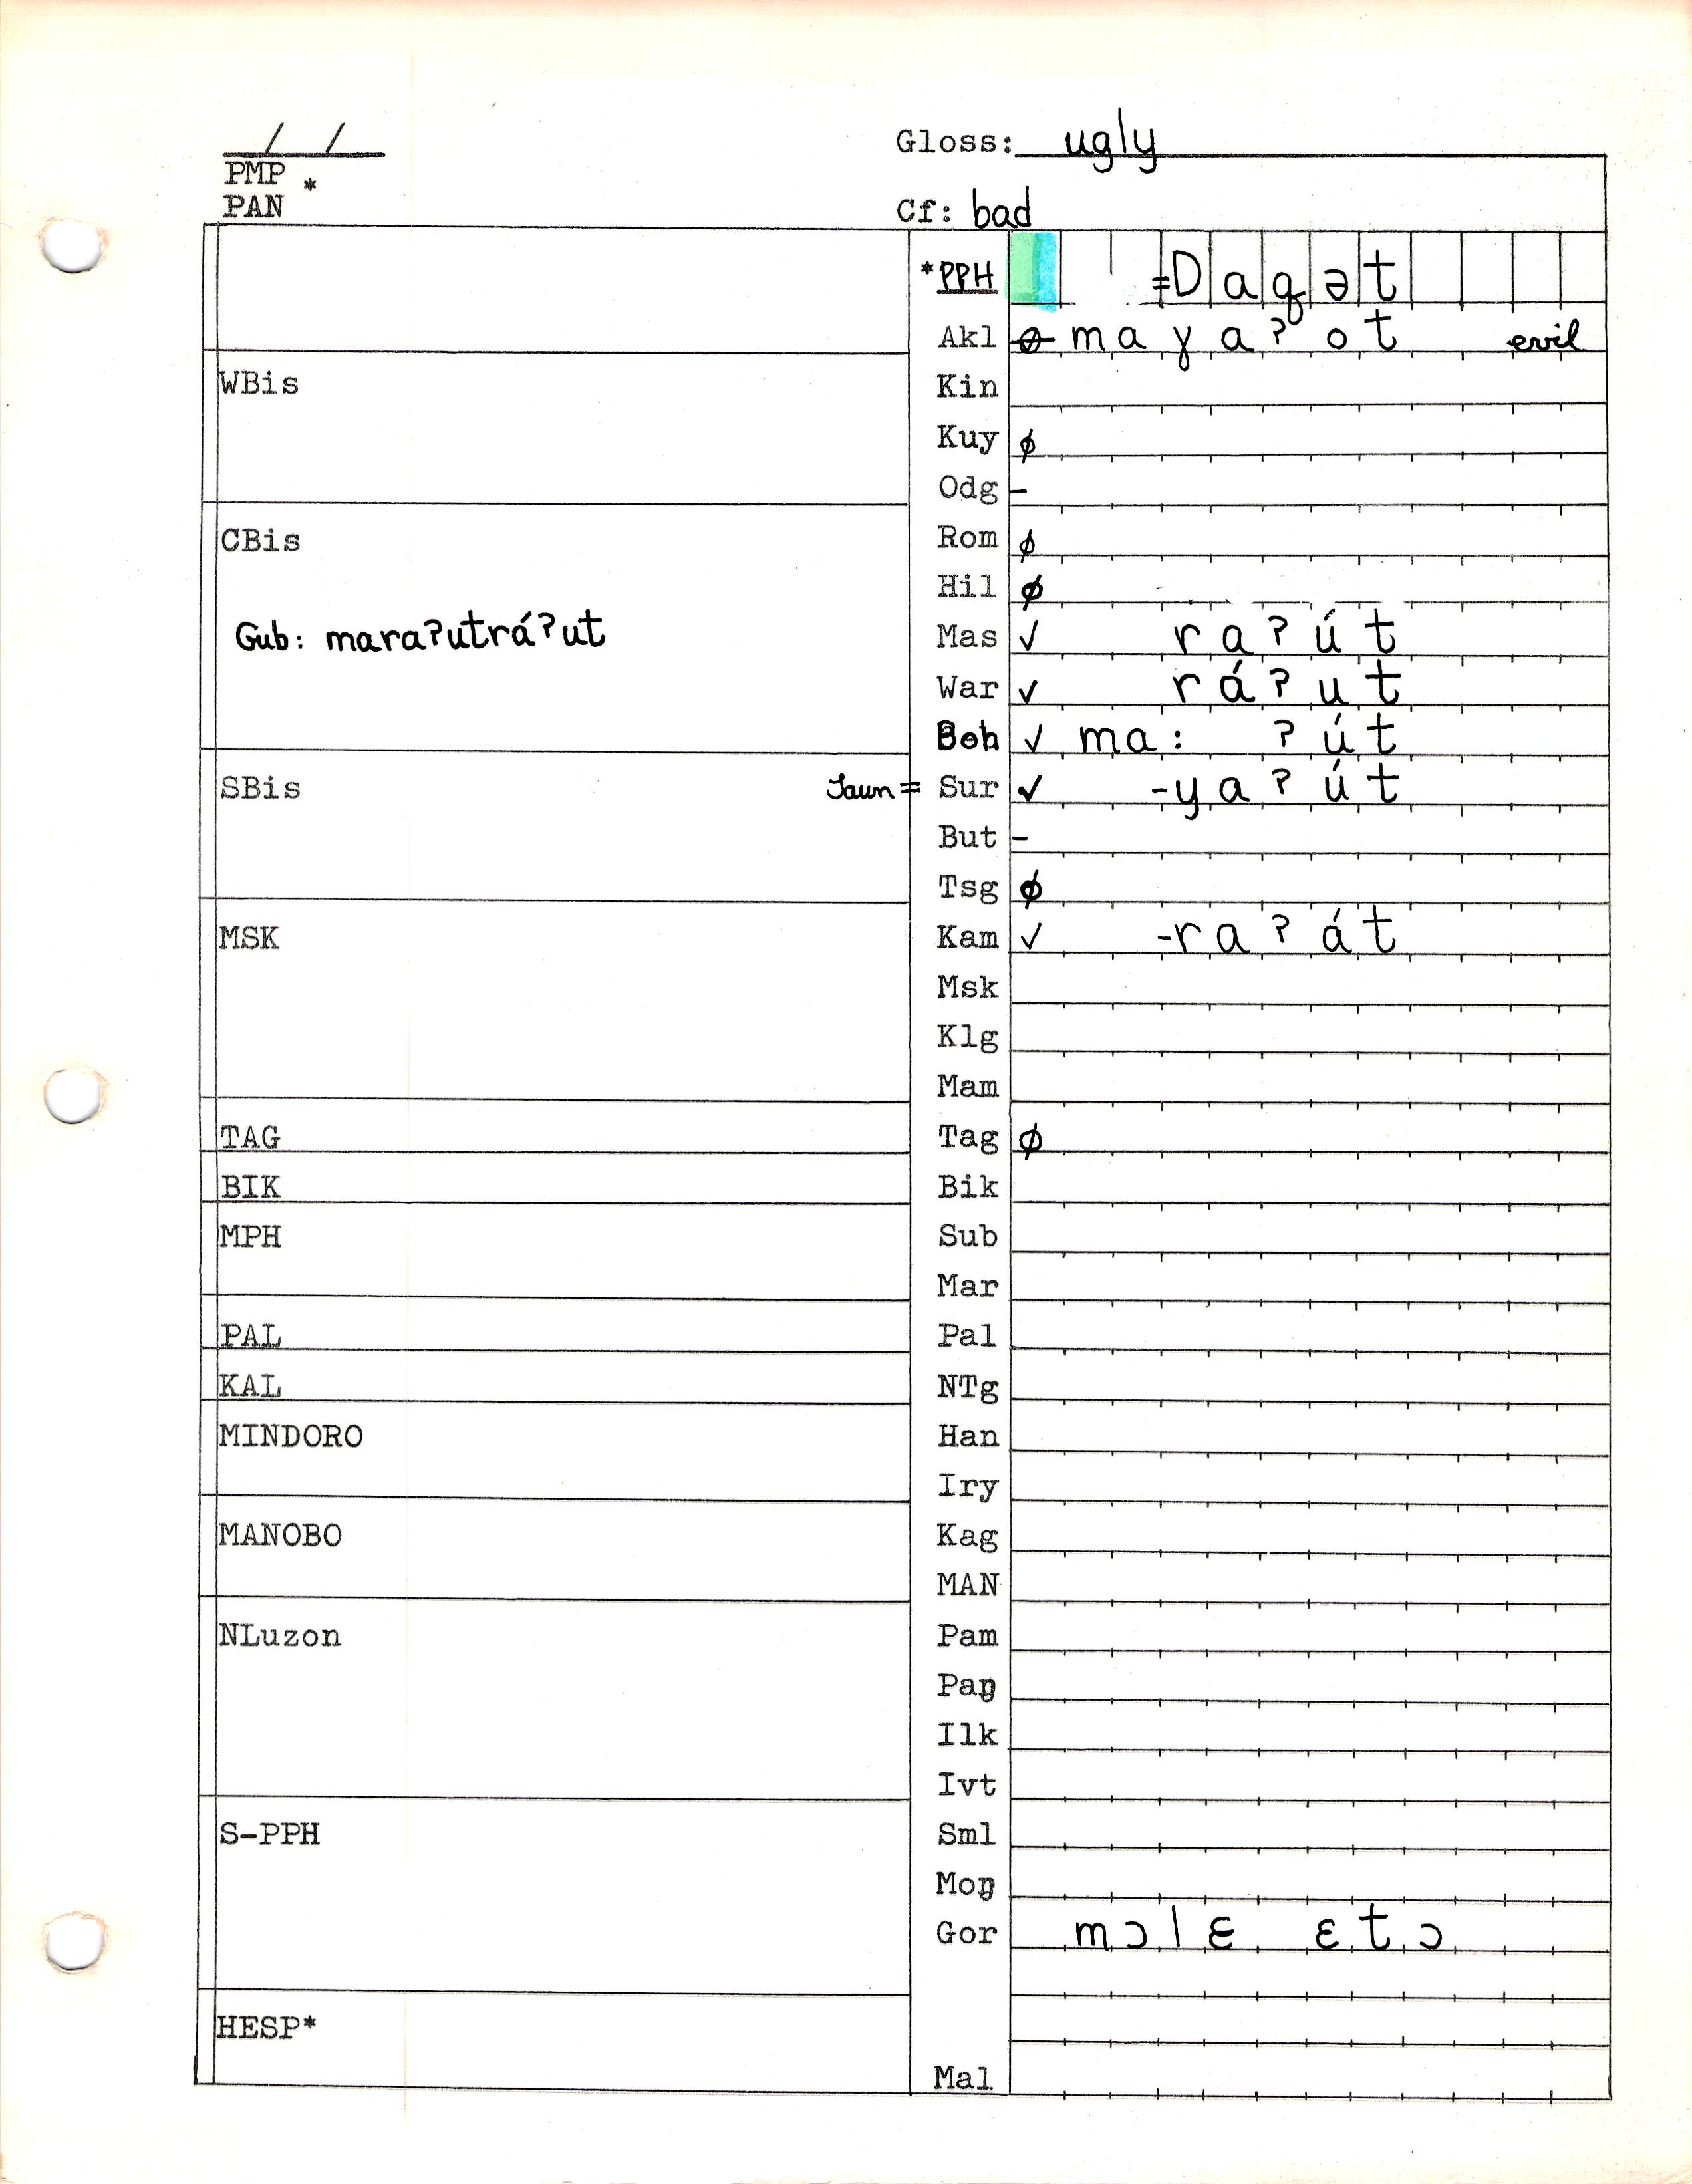 / /
Gloss: ugly
PMP *
PAN
Cf: bad
*PPH =Daqət
Akl ø maɣaʔot evil
WBis
Kin
Kuy ø
Odg -
CBis
Rom ø
Hil ø
Gub: maraʔutráʔut
Mas ✓ raʔút
War ✓ ráʔut
Boh ✓ ma: ʔút
SBis
Jaun = Sur ✓ -yaʔút
But -
Tsg ø
MSK
Kam ✓ -raʔát
Msk
Klg
Mam
TAG
Tag ø
BIK
Bik
MPH
Sub
Mar
PAL
Pal
KAL
NTg
MINDORO
Han
Iry
MANOBO
Kag
MAN
NLuzon
Pam
Paŋ
Ilk
Ivt
S-PPH
Sml
Moŋ
Gor mɔlɛ ɛtɔ
HESP*
Mal